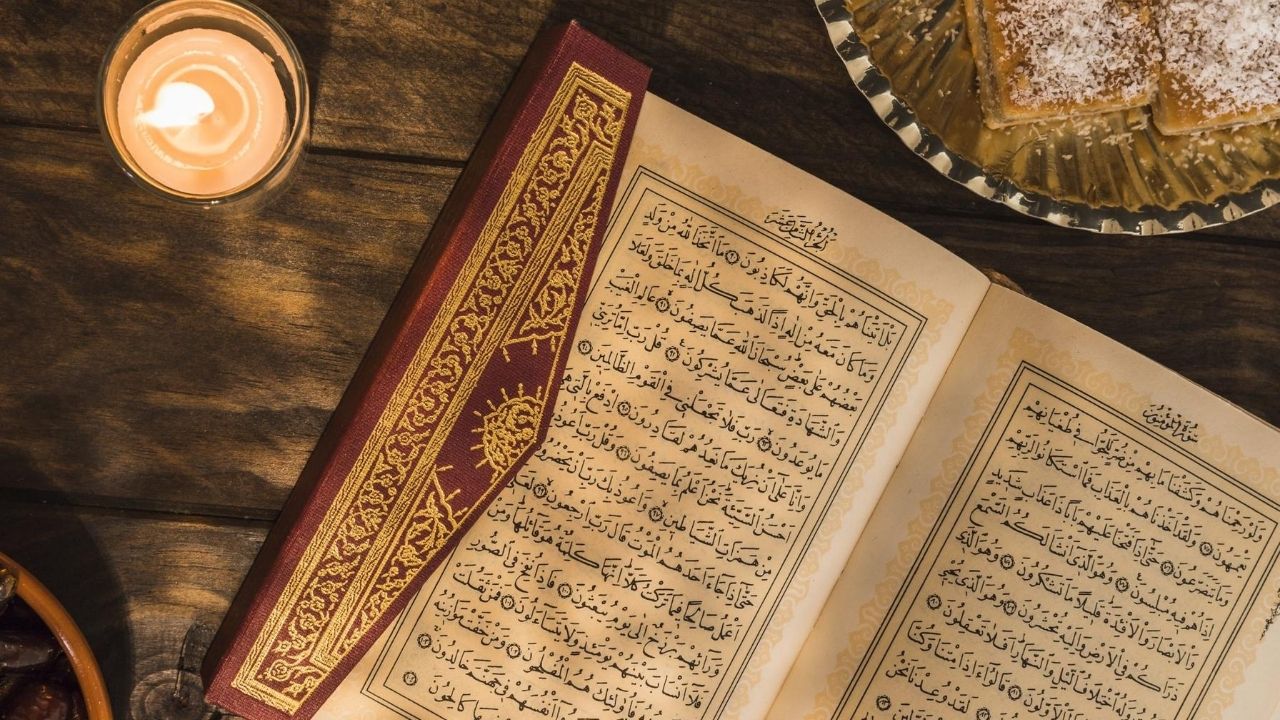 سُورَةُ الْمُؤْمِنُونَ
وَلَوْ رَحِمْنَاهُمْ وَكَشَفْنَا مَا بِهِمْ مِنْ ضُرٍّ لَلَجُّوا فِي طُغْيَانِهِمْ
يَعْمَهُونَ ﴿٧٥﴾ وَلَقَدْ أَخَذْنَاهُمْ بِالْعَذَابِ فَمَا اسْتَكَانُوا لِرَبِّهِمْ
وَمَا يَتَضَرَّعُونَ ﴿٧٦﴾ حَتَّى إِذَا فَتَحْنَا عَلَيْهِمْ بَابًا ذَا عَذَابٍ شَدِيدٍ
إِذَا هُمْ فِيهِ مُبْلِسُونَ ﴿٧٧﴾ وَهُوَ الَّذِي أَنْشَأَ لَكُمُ السَّمْعَ
وَالْأَبْصَارَ وَالْأَفْئِدَةَ قَلِيلًا مَا تَشْكُرُونَ ﴿٧٨﴾ وَهُوَ الَّذِي
ذَرَأَكُمْ فِي الْأَرْضِ وَإِلَيْهِ تُحْشَرُونَ ﴿٧٩﴾ وَهُوَ الَّذِي يُحْيِي
اخْتِلَافُ اللَّيْلِ وَالنَّهَارِ أَفَلَا تَعْقِلُونَ ﴿٨٠﴾
قَالُوا أَإِذَا مِتْنَا وَكُنَّا
لَقَدْ وُعِدْنَا نَحْنُ
اَلْجُزْءُ الثَّامِنَ عَشَرَ
بَلْ أَتَيْنَاهُمْ بِالْحَقِّ وَإِنَّهُمْ لَكَاذِبُونَ ﴿٩٠﴾ مَا اتَّخَذَ اللَّهُ مِنْ وَلَدٍ
وَمَا كَانَ مَعَهُ مِنْ إِلَهٍ إِذًا لَذَهَبَ كُلُّ إِلَهٍ بِمَا خَلَقَ وَلَعَلَا
بَعْضُهُمْ عَلَى بَعْضٍ سُبْحَانَ اللَّهِ عَمَّا يَصِفُونَ ﴿٩١﴾ عَالِمِ الْغَيْبِ
وَالشَّهَادَةِ فَتَعَالَى عَمَّا يُشْرِكُونَ ﴿٩٢﴾ قُلْ رَبِّ إِمَّا تُرِيَنِّي
مَا يُوعَدُونَ ﴿٩٣﴾ رَبِّ فَلَا تَجْعَلْنِي فِي الْقَوْمِ الظَّالِمِينَ ﴿٩٤﴾
وَإِنَّا عَلَى أَنْ نُرِيَكَ مَا نَعِدُهُمْ لَقَادِرُونَ ﴿٩٥﴾ ادْفَعْ بِالَّتِي هِيَ
أَحْسَنُ السَّيِّئَةَ نَحْنُ أَعْلَمُ بِمَا يَصِفُونَ ﴿٩٦﴾ وَقُلْ رَبِّ أَعُوذُ بِكَ
مِنْ هَمَزَاتِ الشَّيَاطِينِ ﴿٩٧﴾ وَأَعُوذُ بِكَ رَبِّ أَنْ يَحْضُرُونِ ﴿٩٨﴾
حَتَّى إِذَا جَاءَ أَحَدَهُمُ الْمَوْتُ قَالَ رَبِّ ارْجِعُونِ ﴿٩٩﴾ لَعَلِّي
أَعْمَلُ صَالِحًا فِيمَا تَرَكْتُ كَلَّا إِنَّهَا كَلِمَةٌ هُوَ قَائِلُهَا وَمِنْ
وَرَائِهِمْ بَرْزَخٌ إِلَى يَوْمِ يُبْعَثُونَ ﴿١٠٠﴾ فَإِذَا نُفِخَ فِي الصُّورِ
فَلَا أَنْسَابَ بَيْنَهُمْ يَوْمَئِذٍ وَلَا يَتَسَاءَلُونَ ﴿١٠١﴾ فَمَنْ ثَقُلَتْ
فَأُولَئِكَ هُمُ الْمُفْلِحُونَ ﴿١٠٢﴾ وَمَنْ خَفَّتْ مَوَازِينُهُ
أَنْفُسَهُمْ فِي جَهَنَّمَ خَالِدُونَ ﴿١٠٣﴾
كَالِحُونَ ﴿١٠٤﴾